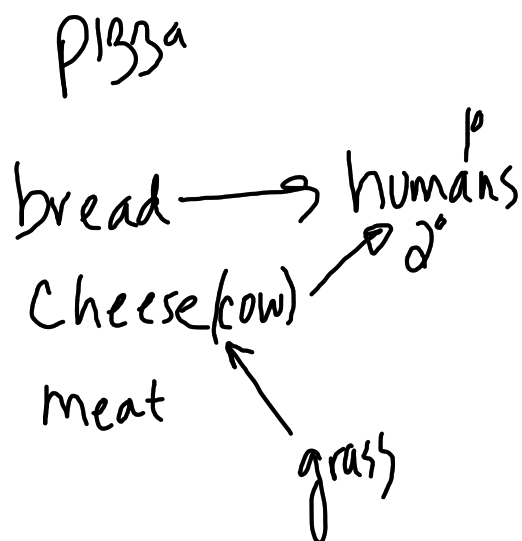 pizza
1°
bread → humans
2°
cheese (cow)
meat
grass